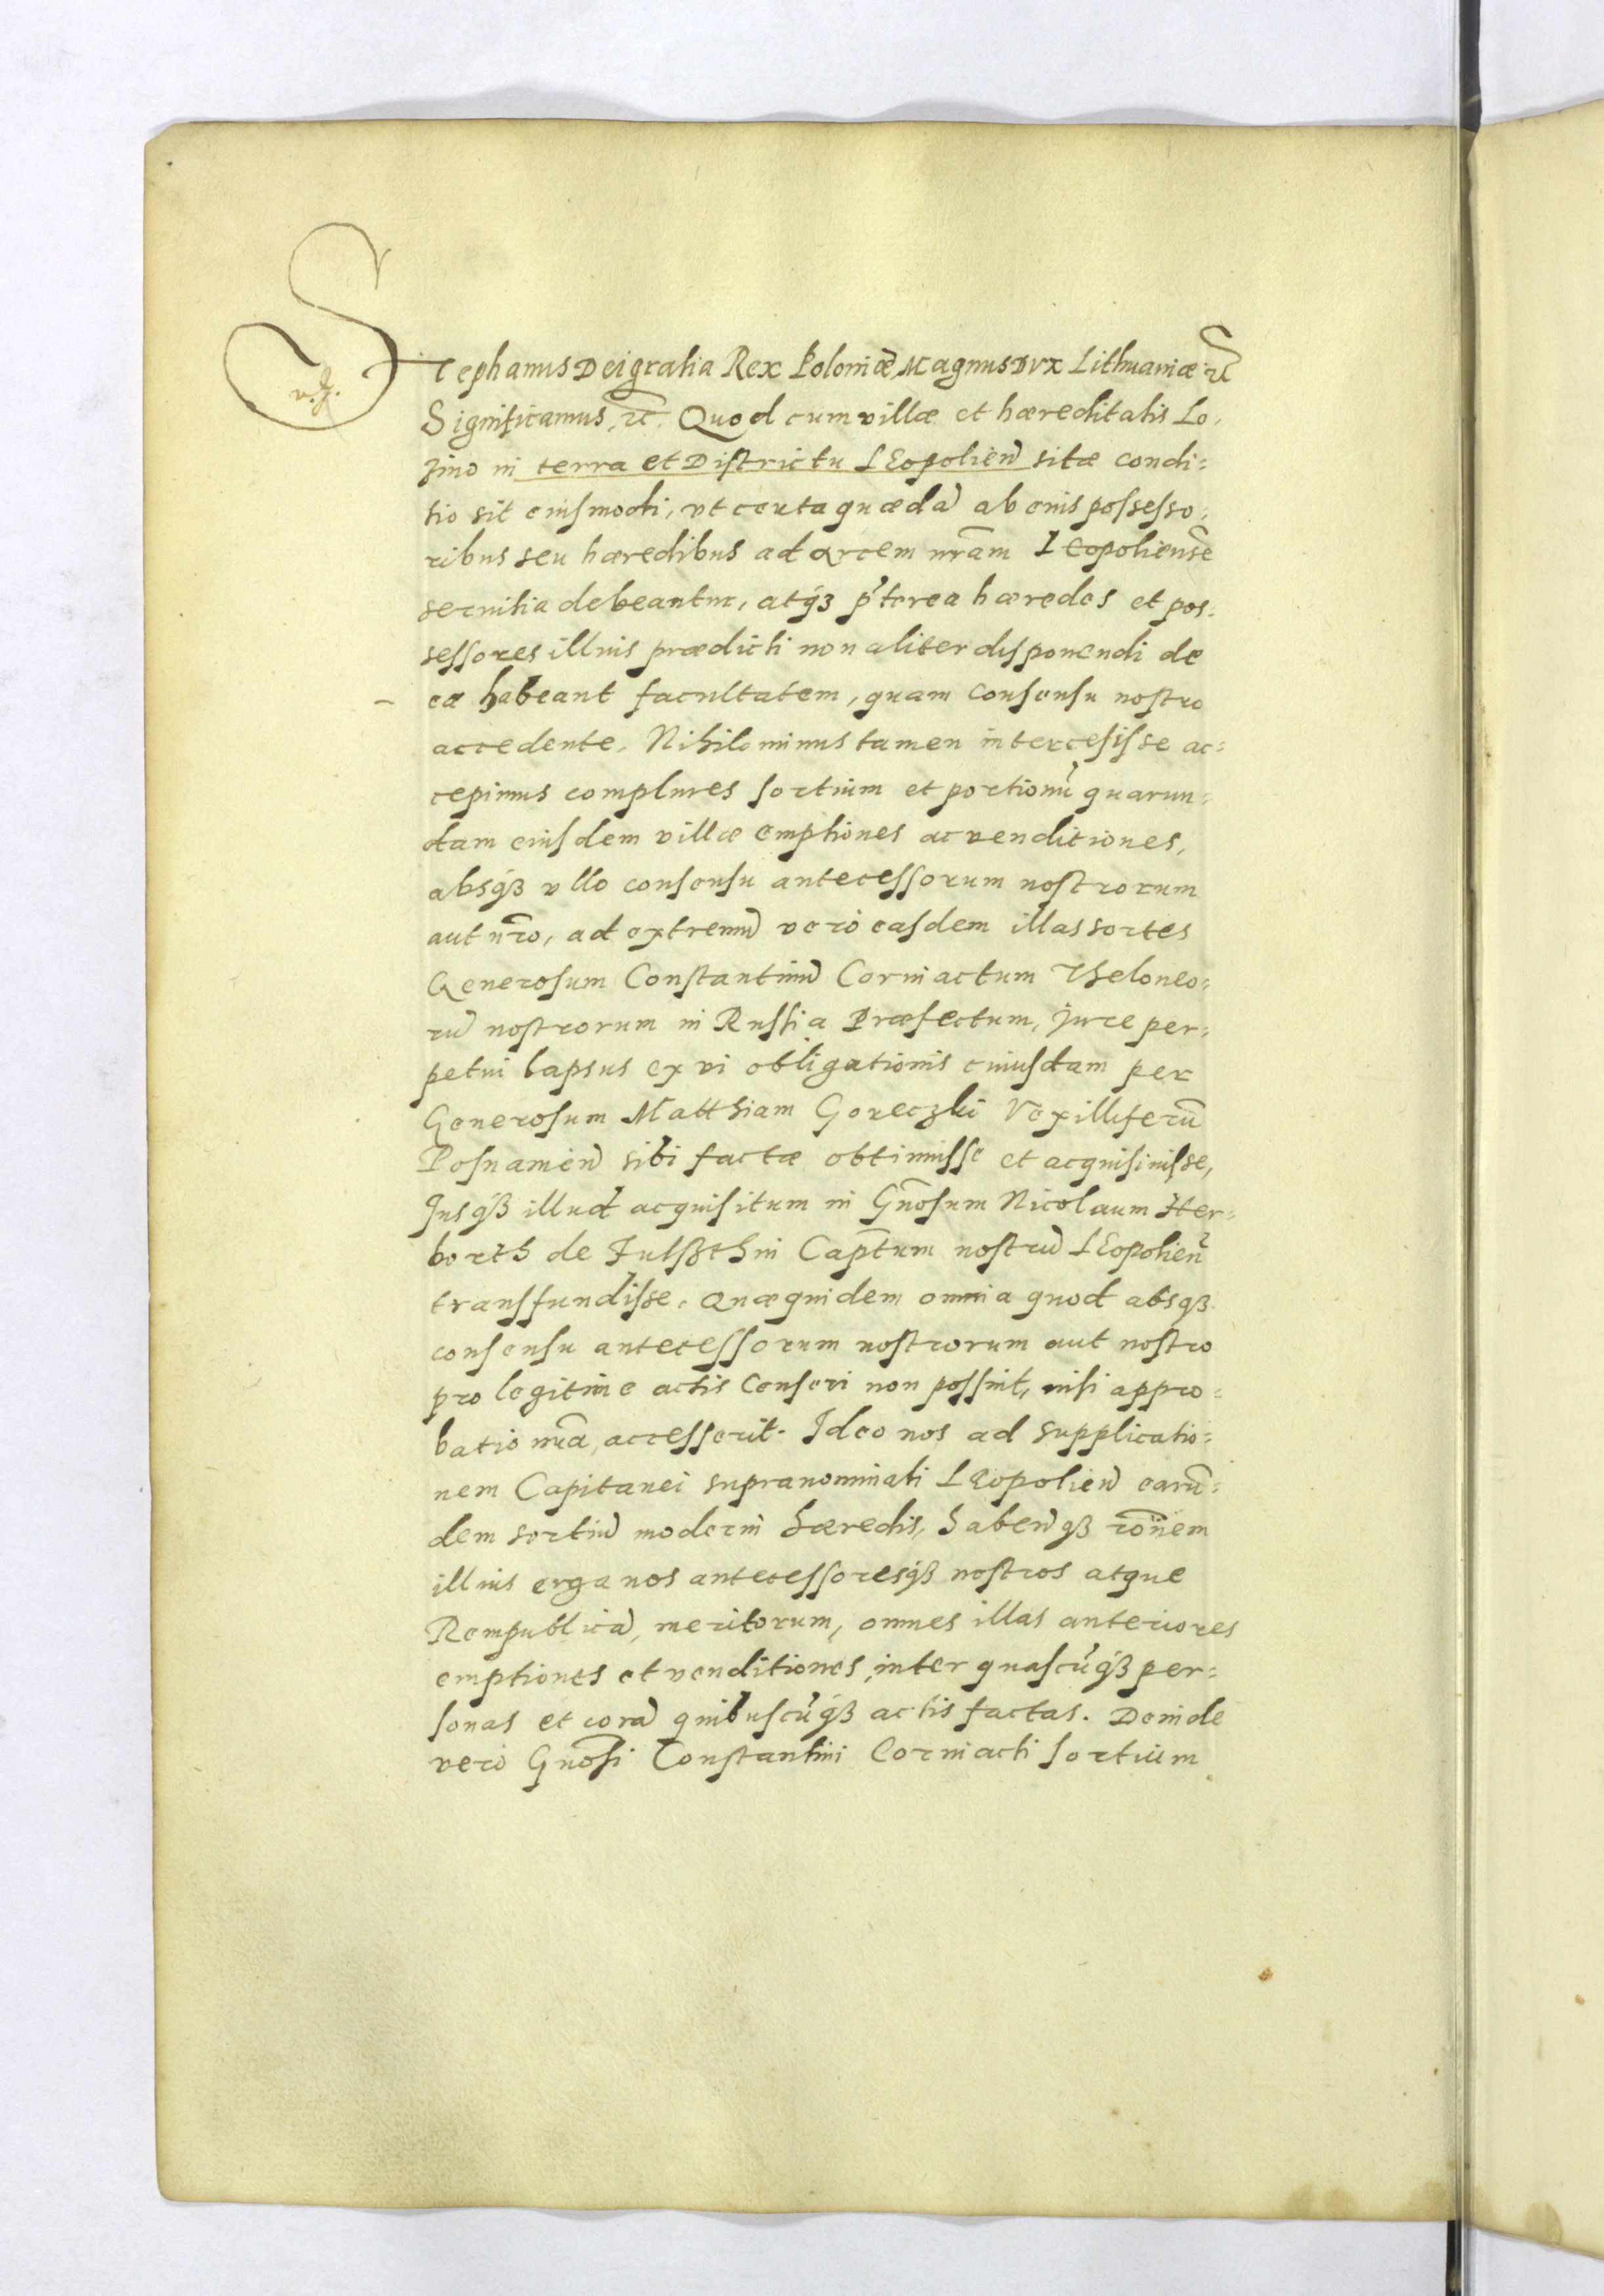 Stephanus Dei gratia Rex Poloniæ, Magnus Dux Lithuaniæ ꝛc̃
Significamus, ꝛc̃. Quod cum villæ et hæreditatis Lo,
zino in terra et Districtu LEopolien̄ sitæ condi=
tio sit eiusmodi, vt certa quædā ab eius possesso=
ribus seu hæredibus ad arcem nr̃am Leopoliensē
seruitia debeantur, atq́ꝫ p̓terea hæredes et pos=
sessores illius prædicti non aliter disponendi de
ea habeant facultatem, quam consensu nostro
accedente. Nihilominus tamen intercesisse ac=
cepimus complures sortium et portionū quarun=
dam eiusdem villæ emptiones ac venditiones,
absq́ꝫ vllo consensu antecessorum nostrorum
aut nr̃o, ad extremū verò easdem illas sortes
Generosum Constantinū Corniactum Theloneo=
rū nostrorum in Russia Præfectum, jure per=
petui lapsus ex vi obligationis cuiusdam per
Generosum Matthiam Goreczki Vexilliferū
Posnamen̄ sibi factæ obtinuisse et acquisiuisse,
Jusq́ꝫ illud acquisitum in Gn̄osum Nicolaum Her=
borth de Fulßthin Capt̄um nostrū LEopolien̄
transfundisse. Quæquidem omnia quod absqꝫ
consensu antecessorum nostrorum aut nostro
pro legitime actis censeri non possint, nisi appro=
batio nr̃a, accesserit. Ideo nos ad supplicatio=
nem Capitanei supranominati LEopolien̄ earū=
dem sortiū moderni hæredis, haben̄qꝫ rōnem
illius erga nos antecessoresq́ꝫ nostros atque
Rempublicā, meritorum, omnes illas anteriores
emptiones et venditiones, inter quascūq́ꝫ per=
sonas et corā quibuscūq́ꝫ actis factas. Deinde
verò Gn̄osi Constantini Corniacti sortium